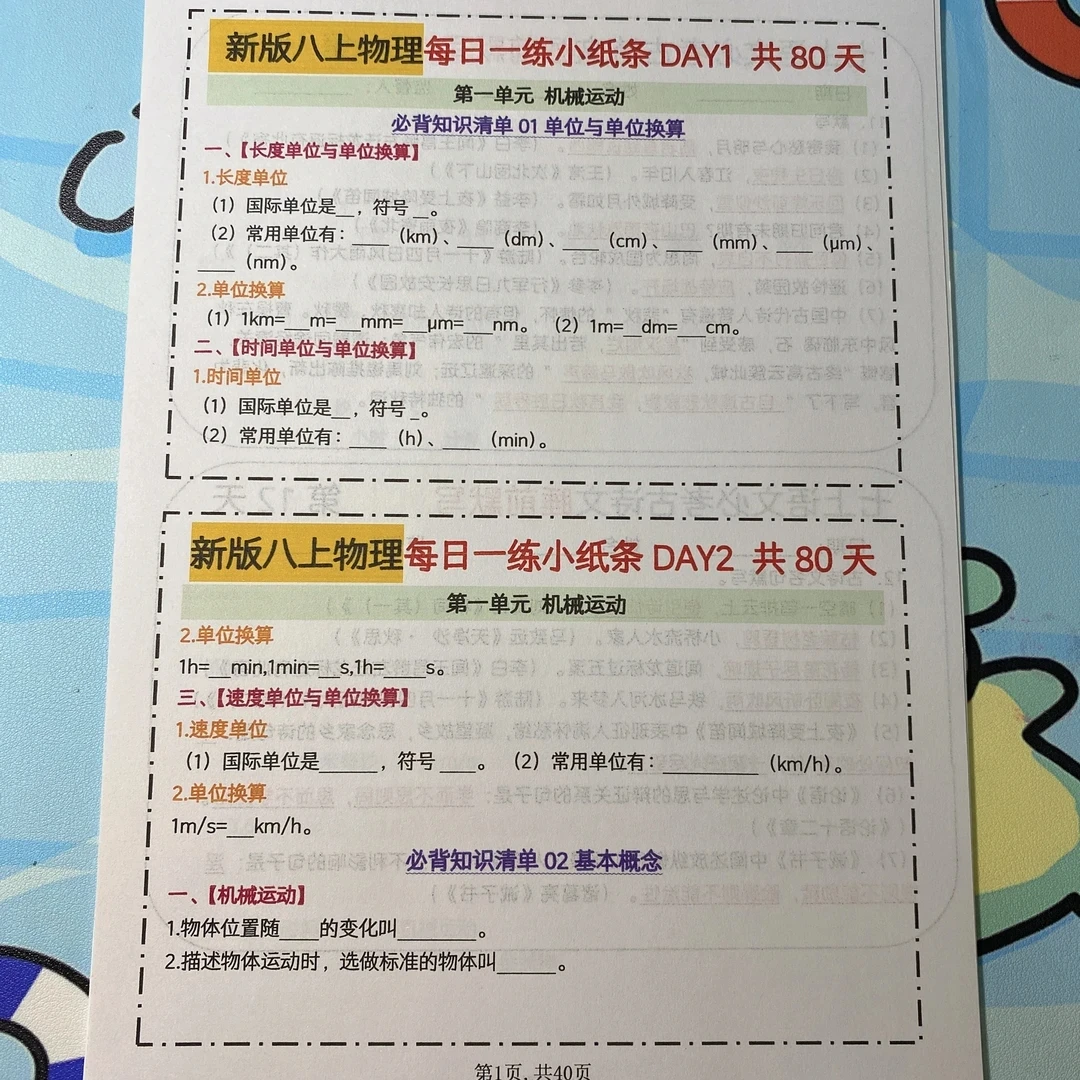 新版八上物理每日一练小纸条 DAY1 共 80 天
第一单元 机械运动
必背知识清单 01 单位与单位换算
一、【长度单位与单位换算】
1.长度单位
（1）国际单位是__，符号__。
（2）常用单位有：____（km）、____（dm）、____（cm）、____（mm）、____（μm）、
____（nm）。
2.单位换算
（1）1km=___m=___mm=___μm=___nm。（2）1m=__dm=___cm。
二、【时间单位与单位换算】
1.时间单位
（1）国际单位是__，符号_。
（2）常用单位有：____（h）、____（min）。
新版八上物理每日一练小纸条 DAY2 共 80 天
第一单元 机械运动
2.单位换算
1h=__min,1min=__s,1h=____s。
三、【速度单位与单位换算】
1.速度单位
（1）国际单位是______，符号____。（2）常用单位有：__________（km/h）。
2.单位换算
1m/s=___km/h。
必背知识清单 02 基本概念
一、【机械运动】
1.物体位置随____的变化叫________。
2.描述物体运动时，选做标准的物体叫______。
第1页,共40页